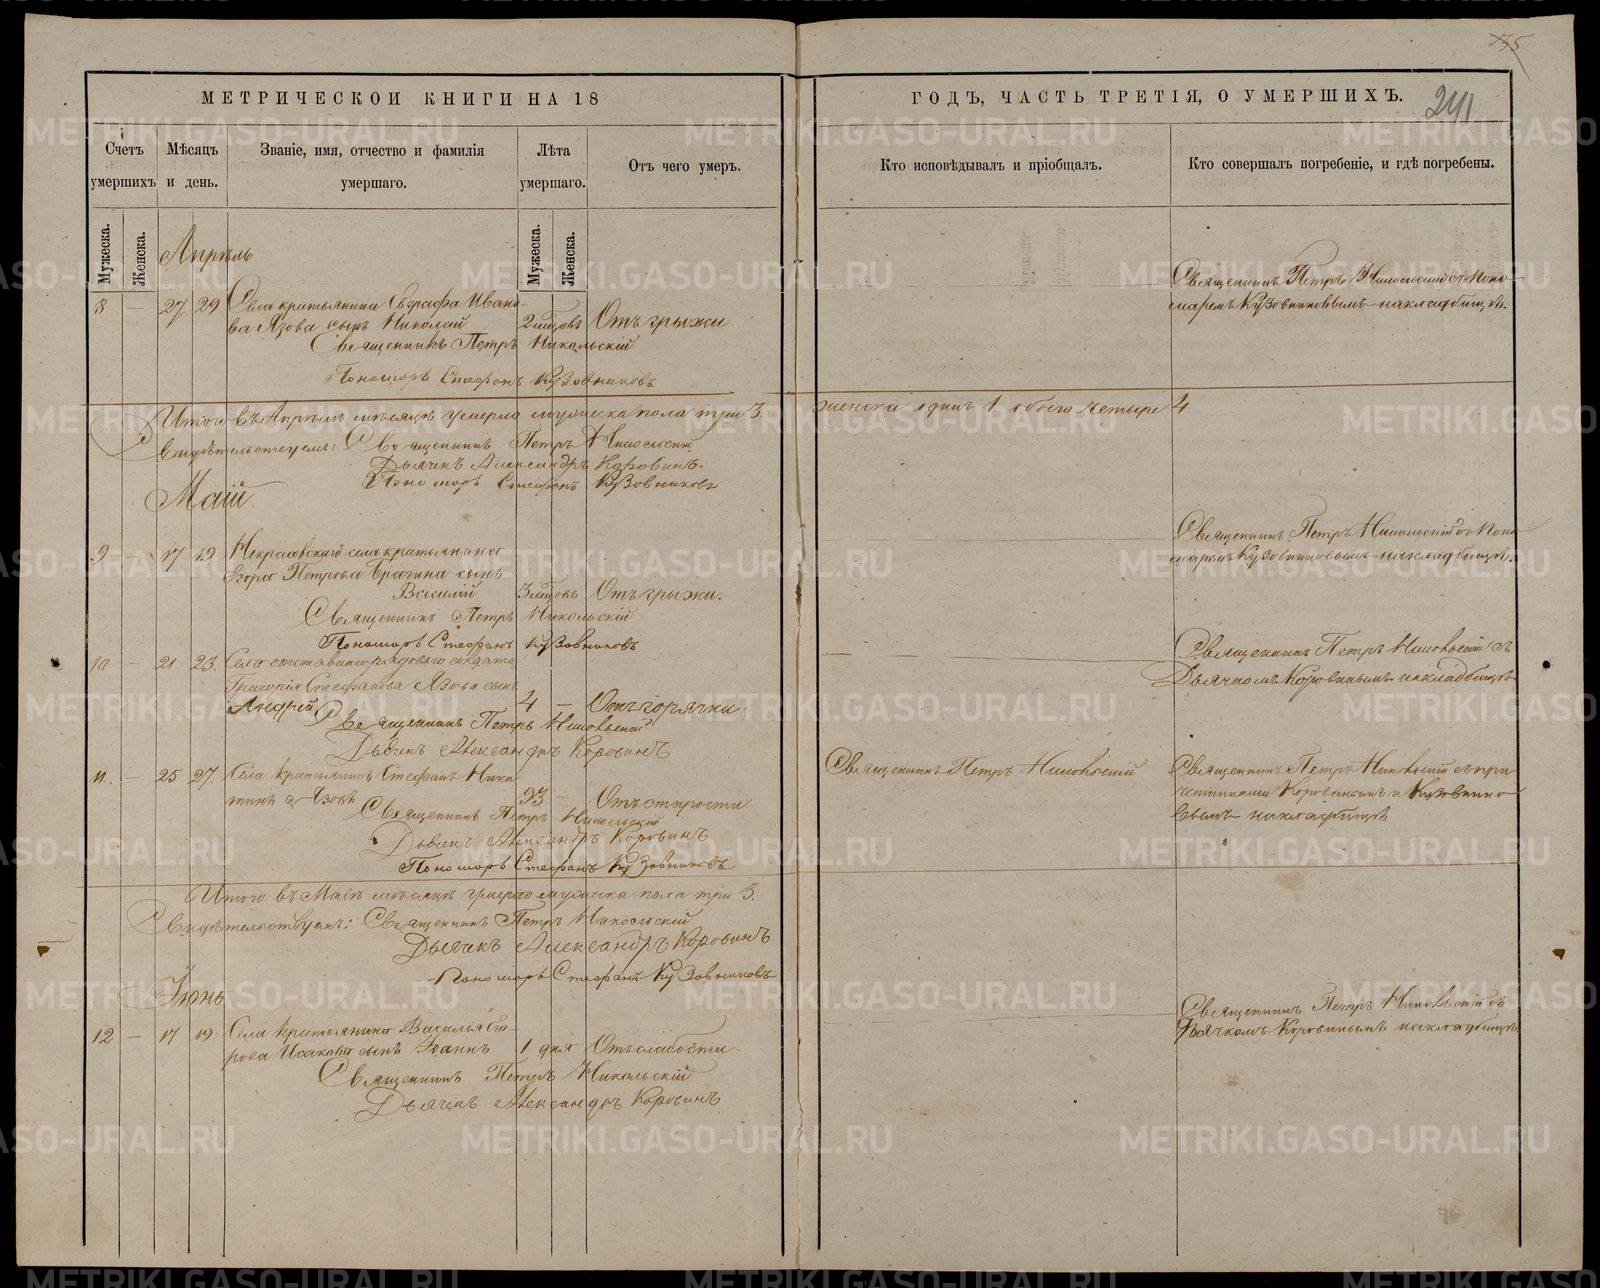 145
241
МЕТРИЧЕСКОЙ КНИГИ НА 18
ГОДЪ, ЧАСТЬ ТРЕТІЯ, О УМЕРШИХЪ.
Счетъ умершихъ
Мѣсяцъ и день.
Званіе, имя, отчество и фамилія умершаго.
Лѣта умершаго.
Отъ чего умеръ.
Кто исповѣдывалъ и пріобщалъ.
Кто совершалъ погребеніе, и гдѣ погребены.
Мужеска.
Женска.
Мужеска.
Женска.
Апрѣль
8 — 27 29 Села крестьянина Евграфа Ивано-
ва Язова сынъ Николай 2 мѣсцовъ Отъ грыжи
Священникъ Петръ Никольскій
Пономарь Стефанъ Кузовниковъ
Священникъ Петръ Никольскій съ Поно-
маремъ Кузовниковымъ на кладбищѣ.
Итого въ Апрѣлѣ мѣсяцѣ умерло мужеска пола три 3. женска одинъ 1 обоего четыре 4
Свидѣтельствуемъ: Священникъ Петръ Никольскій
Дьячекъ Александръ Коровинъ.
Пономарь Стефанъ Кузовниковъ
Маій
9 — 17 19 Некрасовскаго села крестьянина
Петрова Брагина сынъ
Василій 3 мѣсцовъ Отъ грыжи.
Священникъ Петръ Никольскій
Пономарь Стефанъ Кузовниковъ
Священникъ Петръ Никольскій съ Поно
маремъ Кузовниковымъ на кладбищѣ.
10 — 21 23. Села отставнаго рядоваго солдата
Григорія Стефанова Язова сынъ
Андрей 4 — Отъ горячки.
Священникъ Петръ Никольскій
Дьячекъ Александръ Коровинъ
Священникъ Петръ Никольскій съ
Дьячкомъ Коровинымъ на кладбищѣ
11. — 25 27. Села крестьянинъ Стефанъ Ники
тинъ Язовъ 93 — Отъ старости
Священникъ Петръ Никольскій
Дьячекъ Александръ Коровинъ
Пономарь Стефанъ Кузовниковъ
Священникъ Петръ Никольскій
Священникъ Петръ Никольскій съ при
четниками Коровинымъ и Кузовнико
вымъ на кладбищѣ
Итого въ Маѣ мѣсяцѣ умерло мужеска пола три 3.
Свидѣтельствуемъ: Священникъ Петръ Никольскій
Дьячекъ Александръ Коровинъ
Пономарь Стефанъ Кузовниковъ
Іюнь
12 — 17 19 Села крестьянина Василья Ѳео
рова Исакова сынъ Іоаннъ 1 дня Отъ слабости.
Священникъ Петръ Никольскій
Дьячекъ Александръ Коровинъ
Священникъ Петръ Никольскій съ
Дьячкомъ Коровинымъ на кладбищѣ
METRIKI.GASO-URAL.RU